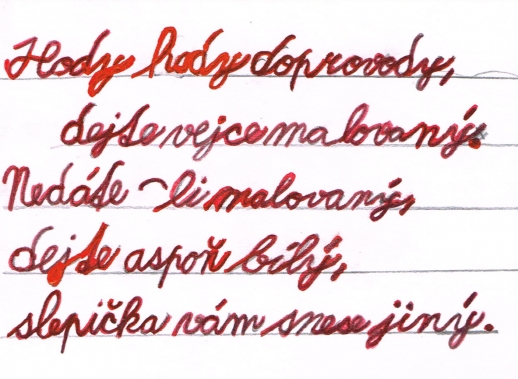 Hody hody doprovody,
dejte vejce malovaný.
Nedáte-li malovaný,
dejte aspoň bílý,
slepička vám snese jiný.